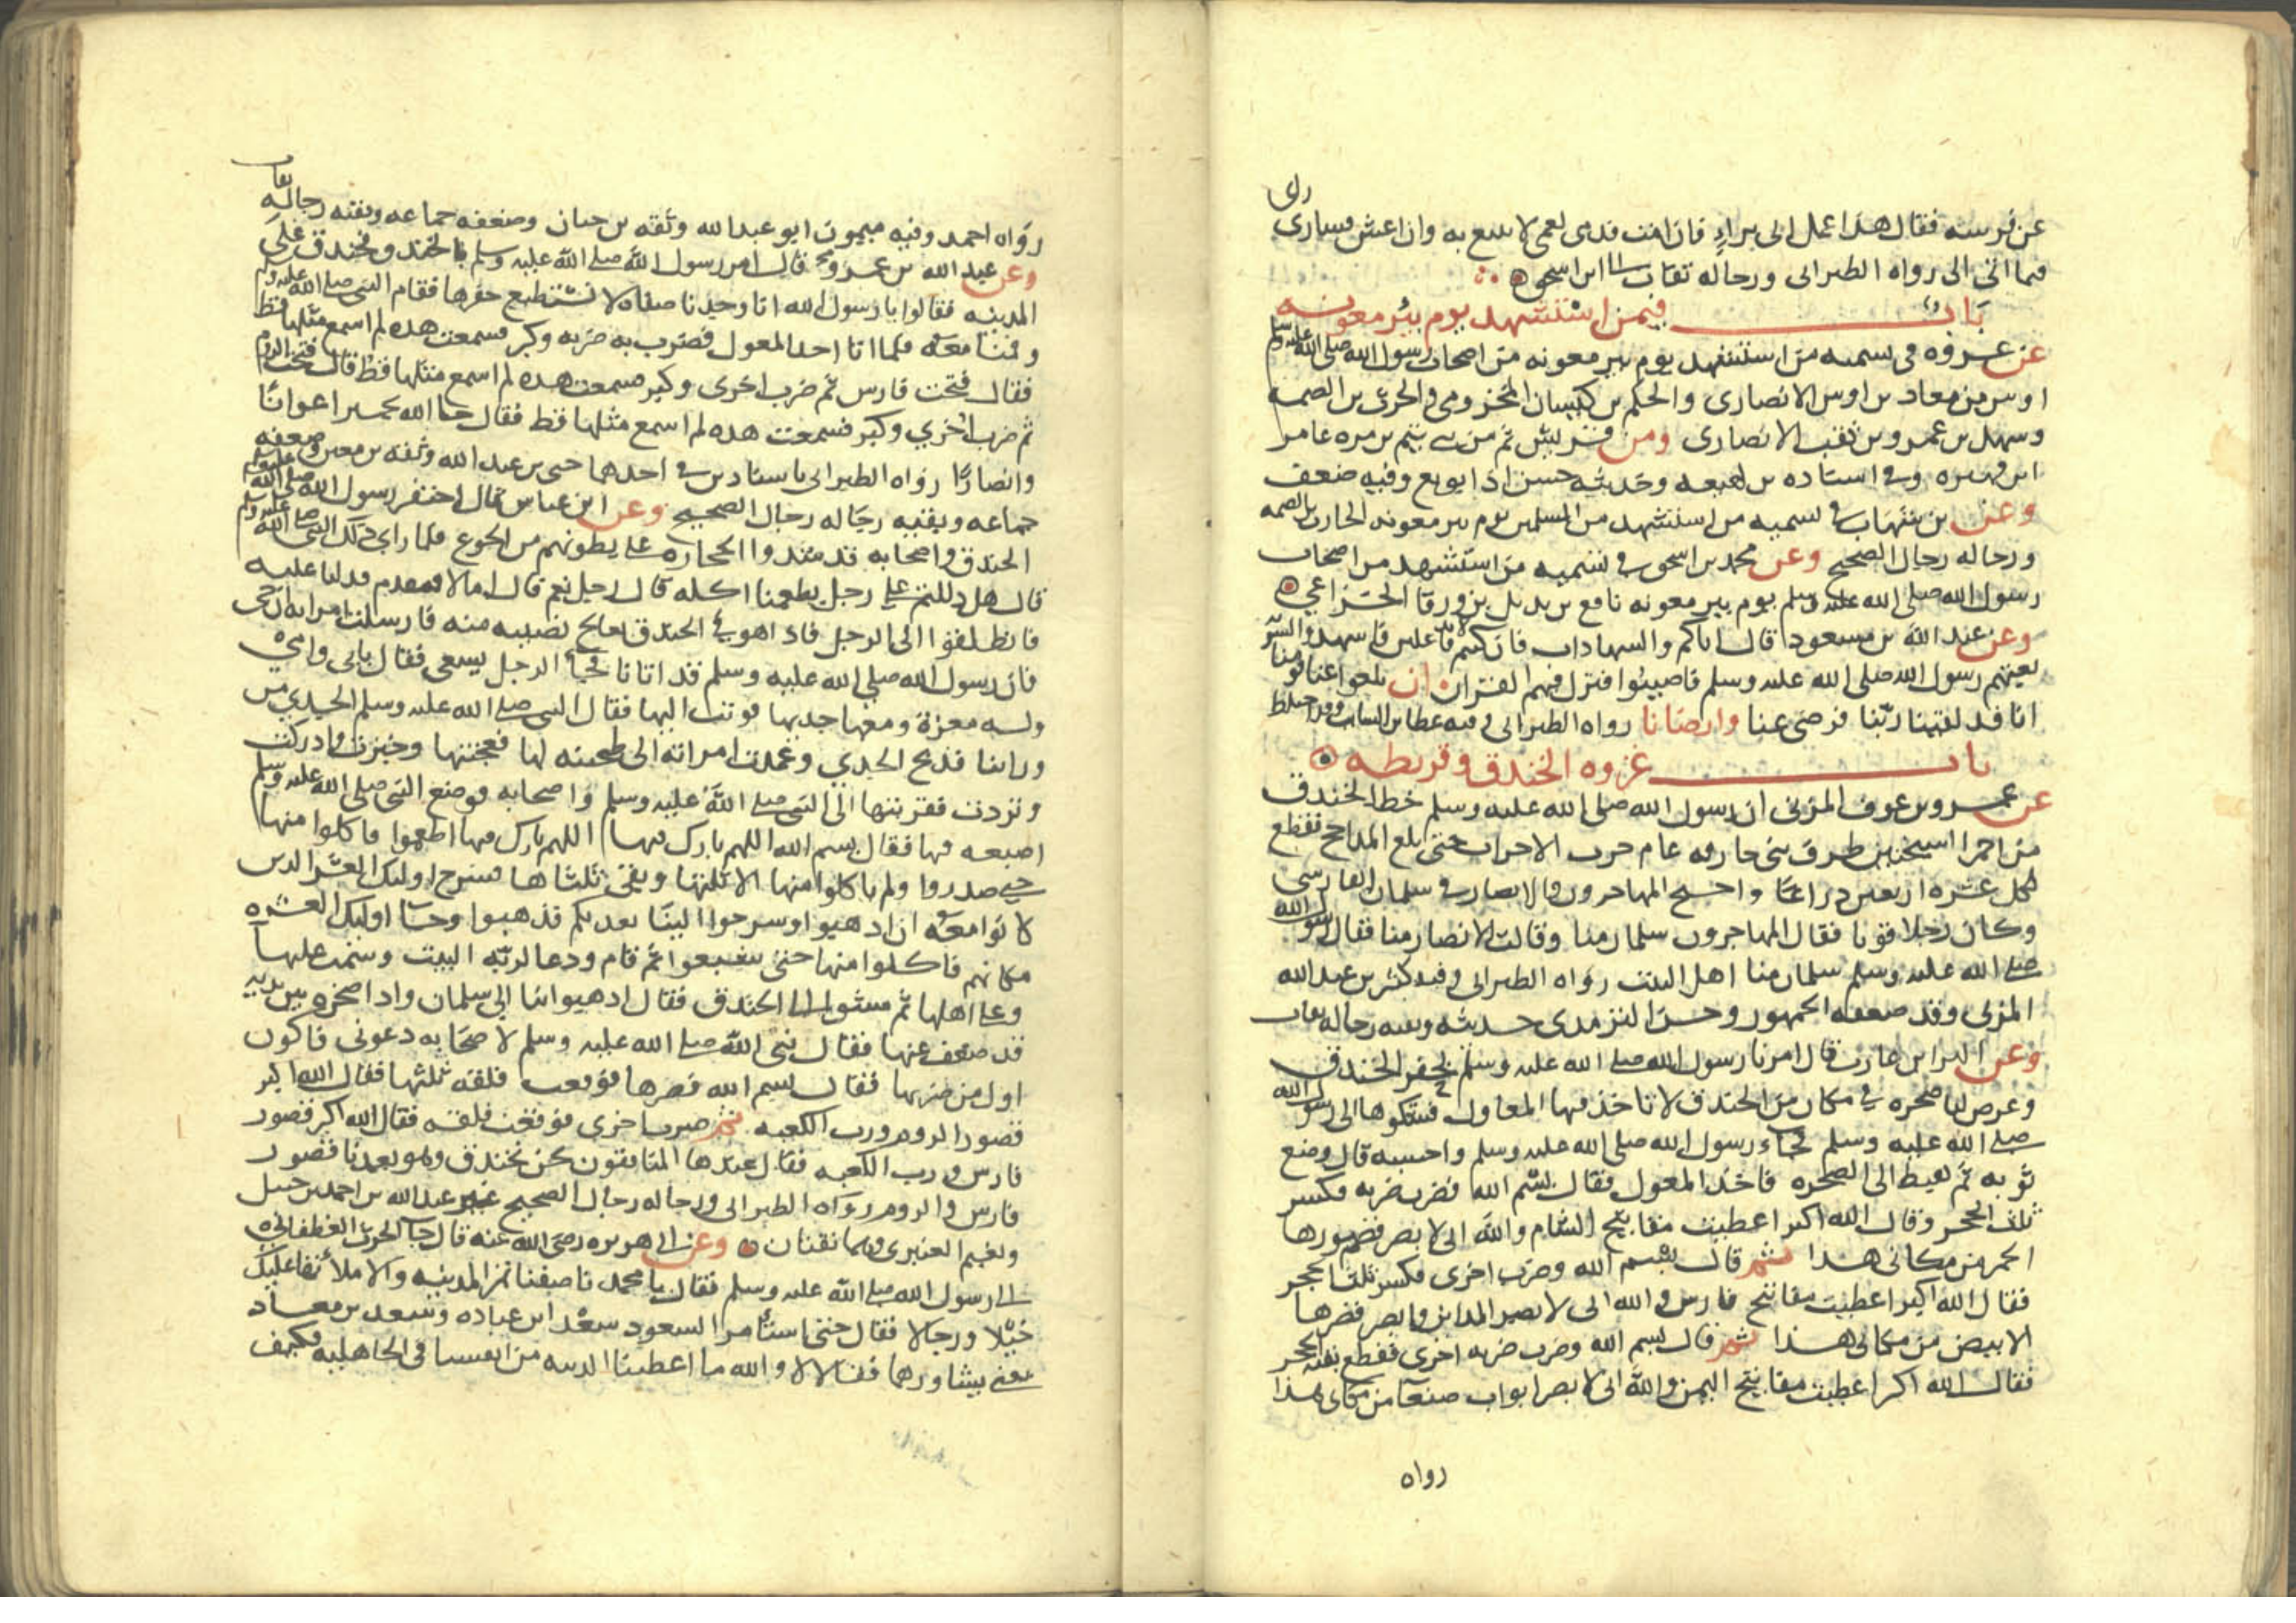 راى
عن فرسه فقال هذا عمل الى براء فان امت فدمى لعمى لا يتبع به وان اعش فسارى
فيما اتى الى رواه الطبرانى ورجاله ثقات الى ابن اسحق
باب فيمن استشهد يوم بئر معونه
عن عروه فى تسميه من استشهد يوم بير معونه من اصحاب رسول الله صلى الله عليه وسلم
اوس بن معاذ بن اوس الانصارى والحكم بن كيسان المخزومى والحرث بن الصمه
وسهل بن عمرو بن ثقب الانصارى ومن قريش ثم من بنى تيم بن مره عامر
ابن فهيره وفى اسناده بن لهيعه وحديثه حسن اذا توبع وفيه ضعف
وعن بن شهاب فى تسميه من استشهد من المسلمين يوم بير معونه الحارث بن الصمه
ورجاله رجال الصحيح وعن محمد بن اسحق فى تسميه من استشهد من اصحاب
رسول الله صلى الله عليه وسلم يوم بير معونه نافع بن بديل بن ورقا الخزاعي
وعن عبد الله بن مسعود قال اياكم والشهادات فان كنتم لابد فاعلين فاشهدوا لسريه
بعثهم رسول الله صلى الله عليه وسلم فاصيبوا فنزل فيهم القران ان بلغوا عنا قومنا
انا قد لقينا ربنا فرضى عنا وارضانا رواه الطبرانى وفيه عطا بن السايب وقد اختلط
باب غزوه الخندق وقريظه
عن عمرو بن عوف المزنى ان رسول الله صلى الله عليه وسلم خط الخندق
من احمر السبختين طرف بنى حارثه عام حرب الاحزاب حتى بلغ المداحج فقطع
لكل عشره اربعين ذراعا واحتج المهاجرون والانصار فى سلمان الفارسى
وكان رجلا قويا فقال المهاجرون سلمان منا وقالت الانصار منا فقال رسول الله
صلى الله عليه وسلم سلمان منا اهل البيت رواه الطبرانى وفيه كثير بن عبد الله
المزنى وقد ضعفه الجمهور وحسن الترمذى حديثه وبقيه رجاله ثقات
وعن البرا بن عازب قال امرنا رسول الله صلى الله عليه وسلم بحفر الخندق
وعرض لنا صخره فى مكان من الخندق لا تاخذ فيها المعاول فشكوها الى رسول الله
صلى الله عليه وسلم فجاء رسول الله صلى الله عليه وسلم واحسبه قال وضع
ثوبه ثم هبط الى الصخره فاخذ المعول فقال بسم الله فضرب ضربه فكسر
ثلث الحجر وقال الله اكبر اعطيت مفاتيح الشام والله انى لابصر قصورها
الحمر من مكانى هذا ثم قال بسم الله وضرب اخرى فكسر ثلث الحجر
فقال الله اكبر اعطيت مفاتيح فارس والله انى لابصر المداين وابصر قصرها
الابيض من مكانى هذا ثم قال بسم الله وضرب ضربه اخرى فقطع بقيه الحجر
فقال الله اكبر اعطيت مفاتيح اليمن والله انى لابصر ابواب صنعا من مكانى هذا
رواه
ثقات
رواه احمد وفيه ميمون ابو عبد الله وثقه بن حبان وضعفه جماعه وبقيه رجاله
وعن عبد الله بن عمرو قال امر رسول الله صلى الله عليه وسلم بالخندق فخندق على
المدينه فقالوا يا رسول الله انا وجدنا صفاه لا نستطيع حفرها فقام النبى صلى الله عليه وسلم
وقمنا معه فلما اتاها اخذ المعول فضرب به ضربه وكبر فسمعت هده لم اسمع مثلها قط
فقال فتحت فارس ثم ضرب اخرى وكبر فسمعت هده لم اسمع مثلها قط فقال فتحت الروم
ثم ضرب اخري وكبر فسمعت هده لم اسمع مثلها قط فقال جا الله بحمير اعوانا
وانصارا رواه الطبرانى باسنادين فى احدهما حيى بن عبد الله وثقه بن معين وضعفه
جماعه وبقيه رجاله رجال الصحيح وعن ابن عباس قال احتفر رسول الله صلى الله عليه وسلم
الخندق واصحابه قد شدوا الحجاره على بطونهم من الجوع فلما راى ذلك النبى صلى الله عليه وسلم
قال هل دللتم على رجل يطعمنا اكله قال رجل نعم قال اما لا فتقدم فدلنا عليه
فانطلقوا الى الرجل فاذا هو فى الخندق يعالج نصيبه منه فارسلت امراته ان جى
فان رسول الله صلى الله عليه وسلم قد اتانا فجا الرجل يسعى فقال بابى وامي
وله معزة ومعها جديها فوثب اليها فقال النبى صلى الله عليه وسلم الجدي من
ورائنا فذبح الجدي وعمدت امراته الى طحينه لها فعجنتها وخبزت وادركت
وثردت فقربتها الى النبى صلى الله عليه وسلم واصحابه فوضع النبى صلى الله عليه وسلم
اصبعه فيها فقال بسم الله اللهم بارك فيها اللهم بارك فيها اطعموا فاكلوا منها
حتى صدروا ولم ياكلوا منها الا ثلثها وبقى ثلثاها فسرح اوليك العشر الذين
كانوا معه ان اذهبوا وسرحوا الينا بعدتكم فذهبوا وجا اوليك العشره
مكانهم فاكلوا منها حتى شبعوا ثم قام ودعا لربه البيت وسمت عليها
وعلى اهلها ثم مشوا الى الخندق فقال اذهبوا بنا الى سلمان واذا صخره بين يديه
قد ضعف عنها فقال نبى الله صلى الله عليه وسلم لاصحابه دعونى فاكون
اول من ضربها فقال بسم الله فضربها فوقعت فلقه ثلثها فقال الله اكبر
قصور الروم ورب الكعبه ثم ضرب اخرى فوقعت فلقه فقال الله اكبر قصور
فارس ورب الكعبه فقال عندها المنافقون نحن نخندق وهو يعدنا قصور
فارس والروم رواه الطبرانى ورجاله رجال الصحيح غير عبد الله بن احمد بن حنبل
ونعيم العنبرى وهما ثقتان وعن ابى هريره رضى الله عنه قال جا الحرث الغطفانى
الى رسول الله صلى الله عليه وسلم فقال يا محمد ناصفنا تمر المدينه والا ملانها عليك
خيلا ورجالا فقال حتى استامر السعود سعد ابن عباده وسعد بن معاذ
يعنى يشاورهما فقالا لا والله ما اعطينا الدنيه من انفسنا فى الجاهليه فكيف